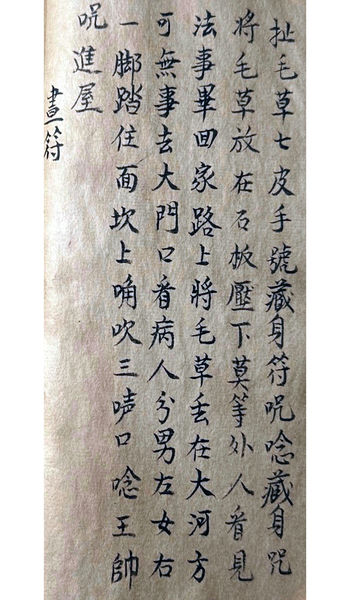 扯毛草七皮手號藏身符咒唸藏身咒
將毛草放在石板壓下莫等外人看見
法事畢回家路上將毛草丢在大河方
可無事去大門口看病人分男左女右
一脚踏住面坎上角吹三声口唸王帥
咒進屋
畫符